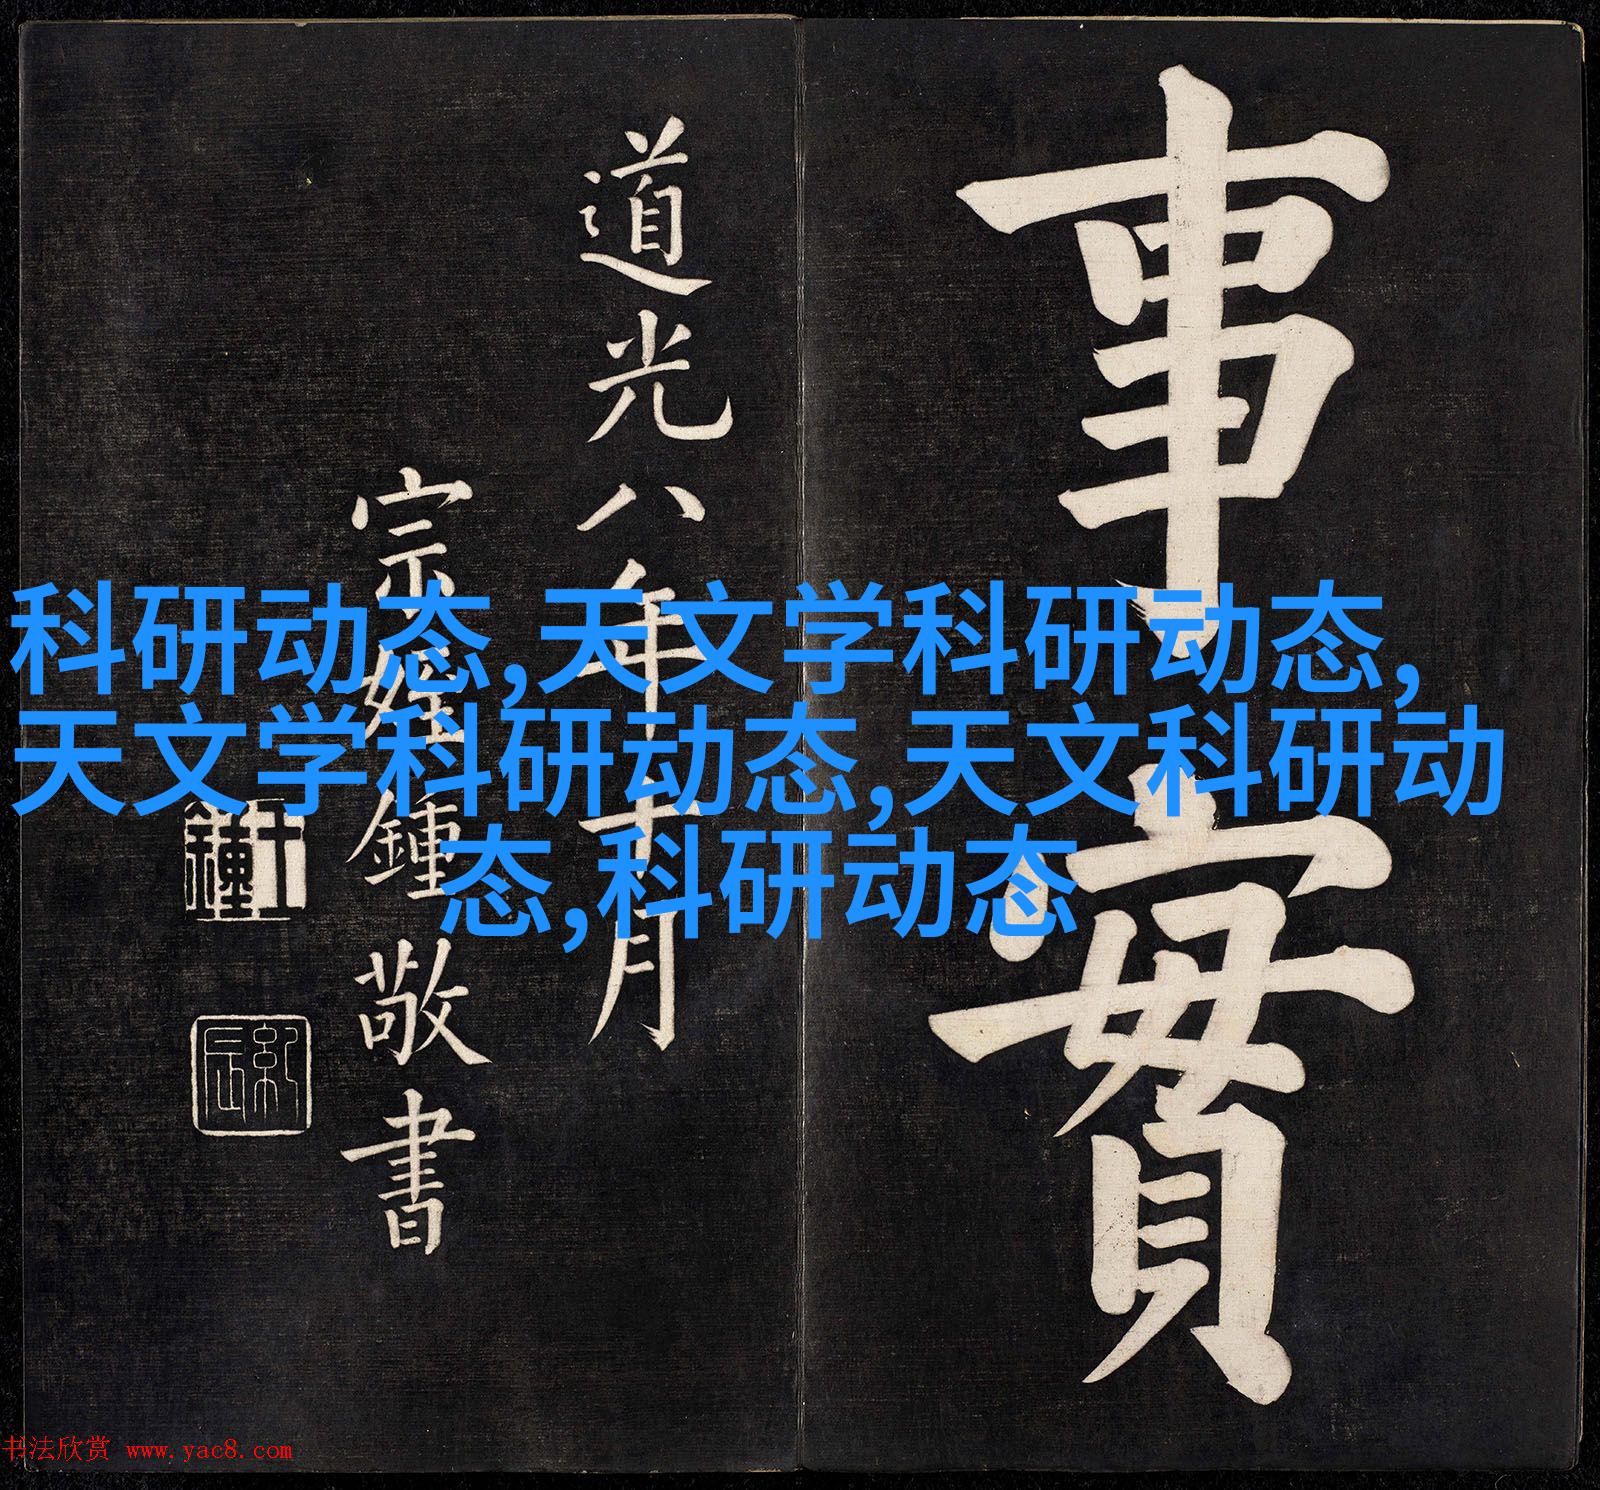 事實
道光八年十月
宗姪鍾敬書
科研动态,天文学科研动态,
天文学科研动态,天文科研动
态,科研动态
书法欣赏 www.yac8.com